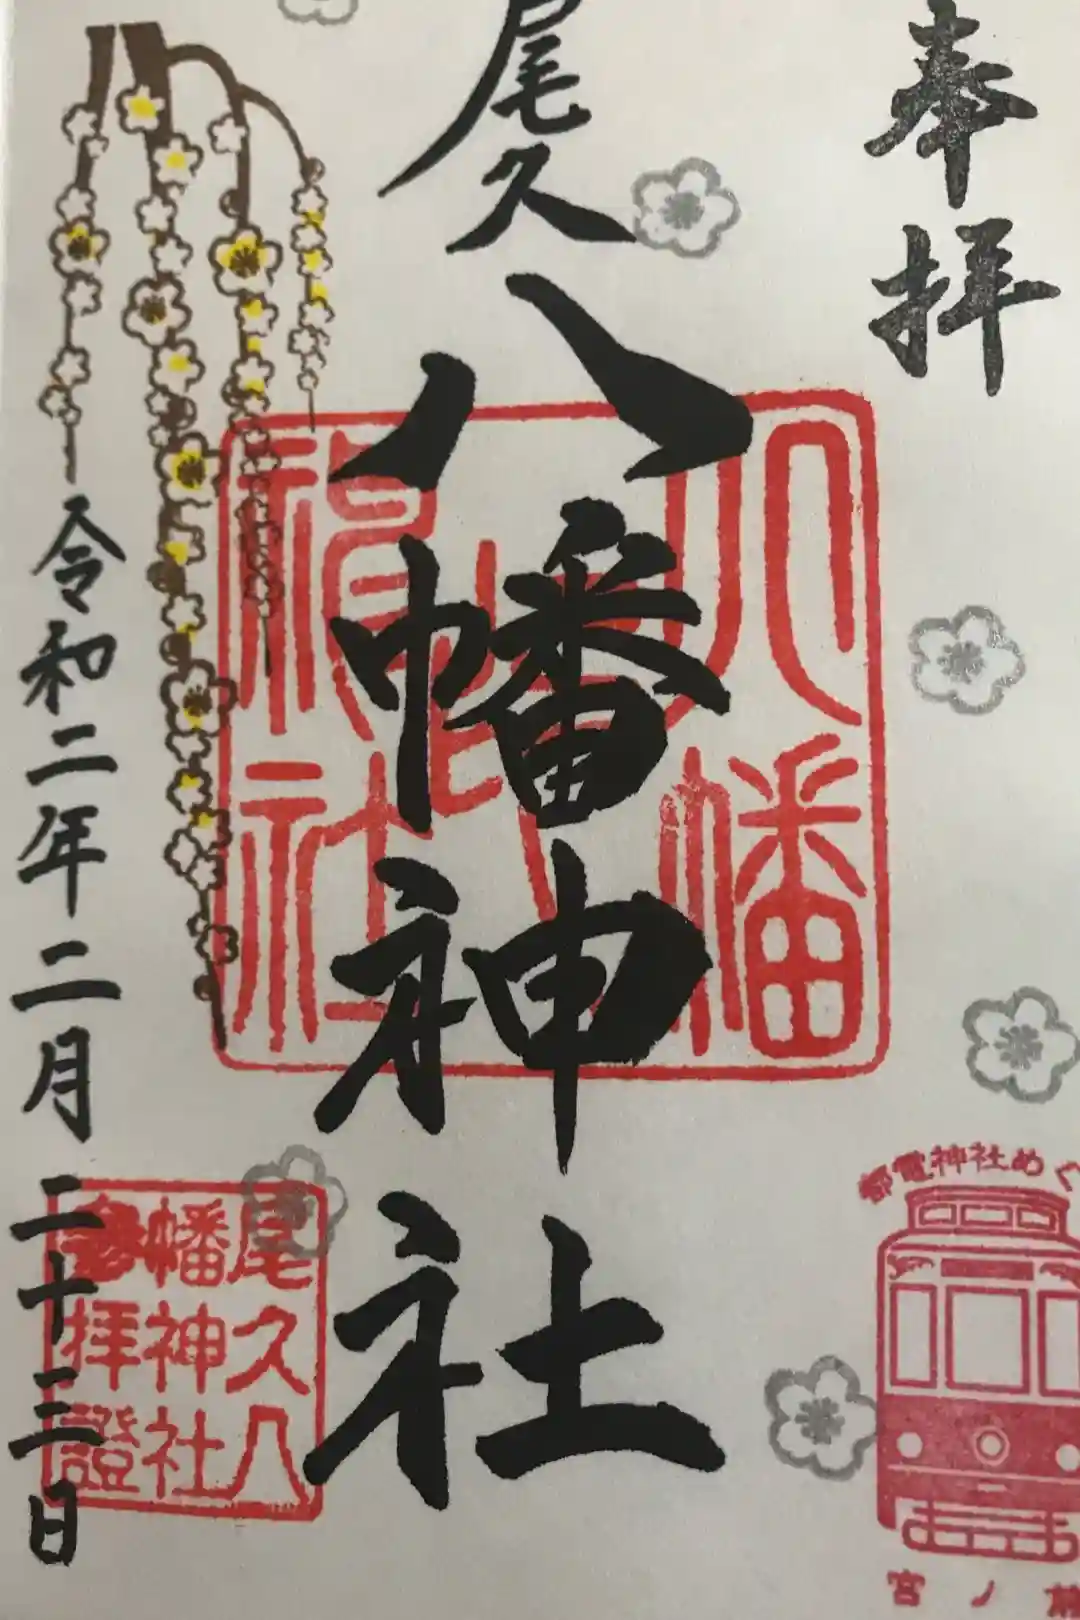 奉拝
尾久八幡神社
令和二年二月二十三日
八幡
神社
尾久八
幡神社
参拝證
都電神社めぐ
宮ノ前